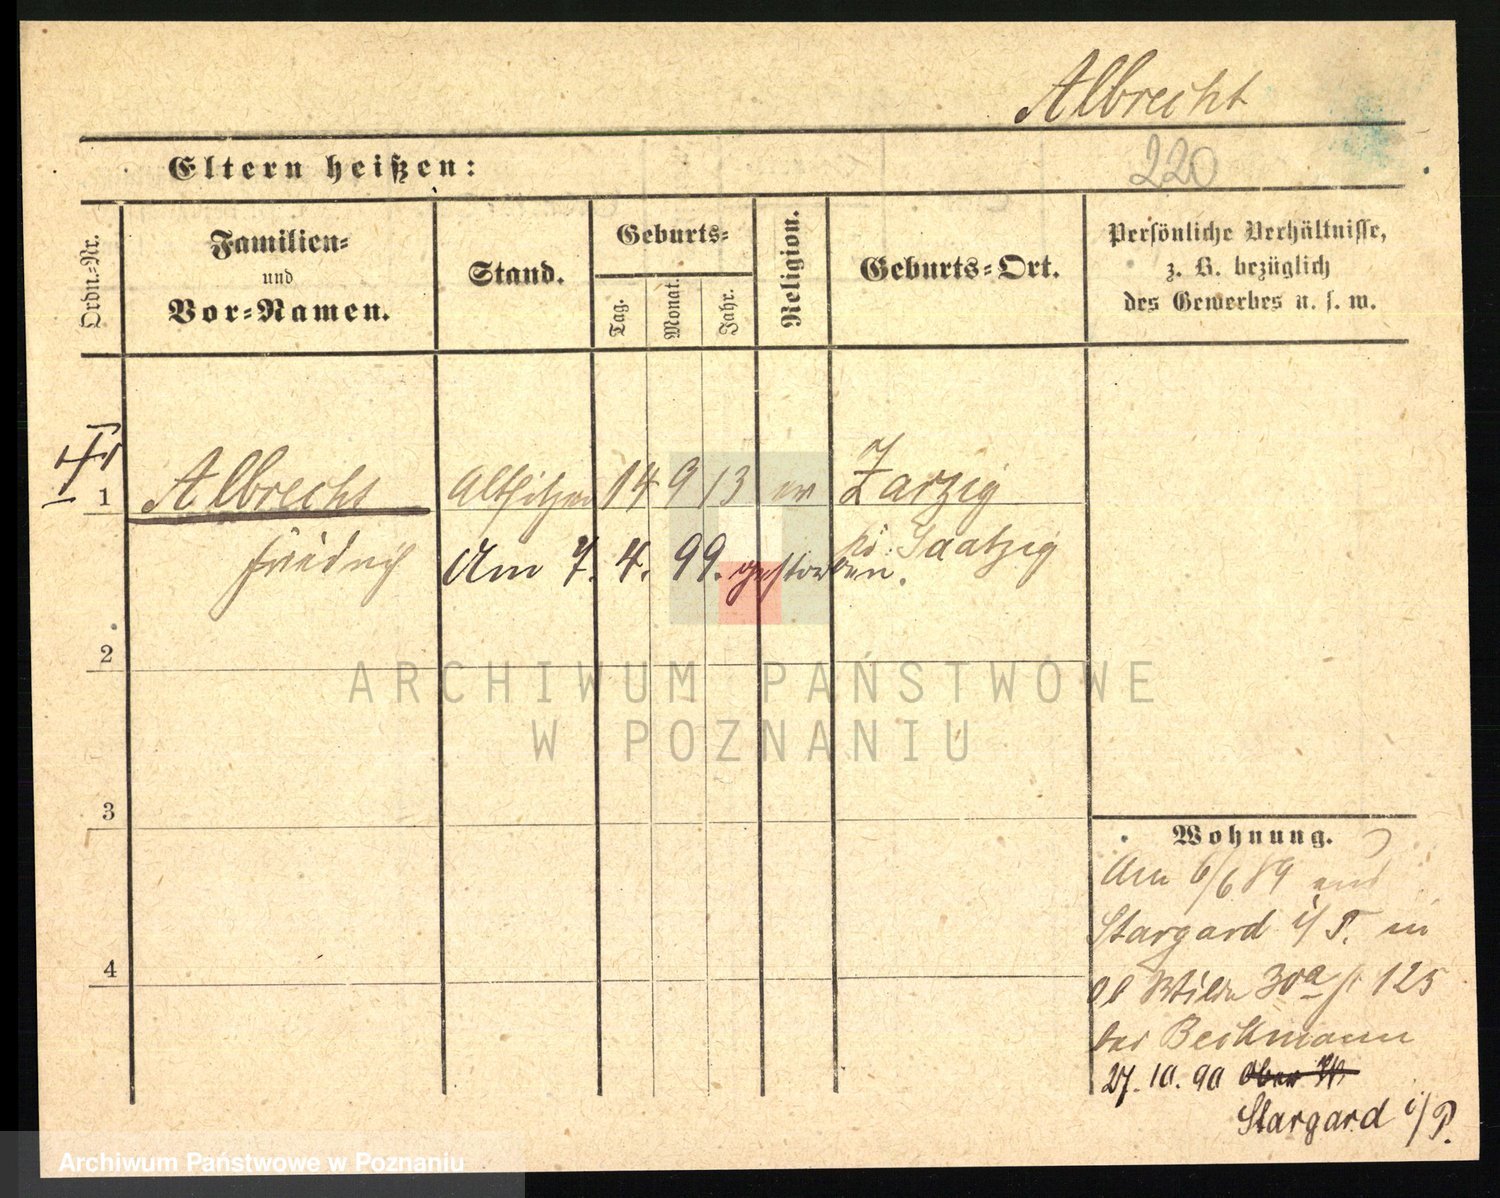 Albrecht
Eltern heißen:
220
Ordn.-Nr.
Familien-
und
Vor-Namen.
Stand.
Geburts-
Tag.
Monat.
Jahr.
Religion.
Geburts-Ort.
Persönliche Verhältnisse,
z. B. bezüglich
des Gewerbes u. s. w.
1 Albrecht Altsitzer 14 9 13 ev Zarzig
Friedrich Kr. Saatzig
Am 7. 4. 99. gestorben.
2
ARCHIWUM PAŃSTWOWE
W POZNANIU
3
4
Wohnung.
Am 6/6 89 aus
Stargard i/P. in
Ob Wilda 30a 125
bei Beckmann
27. 10. 90 Ober W.
Stargard i/P.
Archiwum Państwowe w Poznaniu